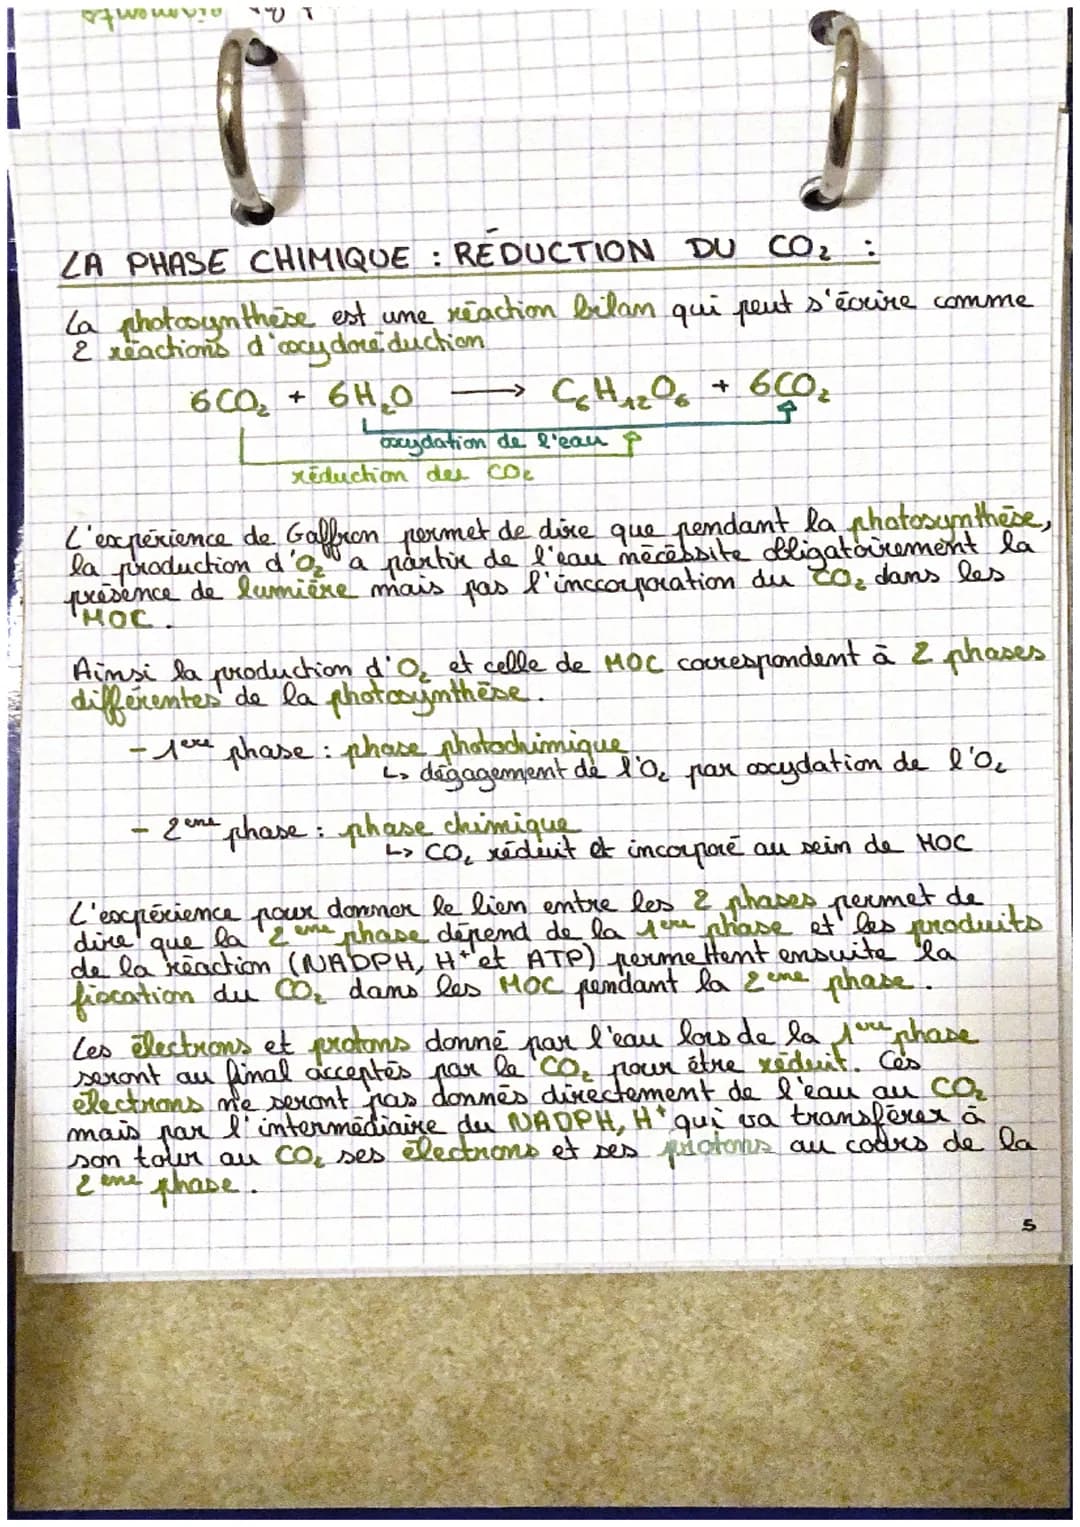 LA PHASE CHIMIQUE : RÉDUCTION DU CO₂ :
La photosynthèse est une réaction bilan qui peut s'écrire comme
2 réactions d'oxydoréduction
6CO₂ + 6H₂O ⟶ C₆H₁₂O₆ + 6CO₂
oxydation de l'eau
réduction des CO₂
L'expérience de Gaffron permet de dire que pendant la photosynthèse,
la production d'O₂ a partir de l'eau nécessite obligatoirement la
présence de lumière mais pas l'inccorporation du CO₂ dans les
MOC.
Ainsi la production d'O₂ et celle de MOC correspondent à 2 phases
différentes de la photosynthèse.
- 1ère phase : phase photochimique
↳ dégagement de l'O₂ par oxydation de l'O₂
- 2ème phase : phase chimique
↳ CO₂ réduit et incorporé au sein de MOC
L'expérience pour donner le lien entre les 2 phases permet de
dire que la 2ème phase dépend de la 1ère phase et les produits
de la réaction (NADPH, H⁺ et ATP) permettent ensuite la
fixation du CO₂ dans les MOC pendant la 2ème phase.
Les électrons et protons donné par l'eau lors de la 1ère phase
seront au final acceptés par le CO₂ pour être réduit. Ces
électrons ne seront pas donnés directement de l'eau au CO₂
mais par l'intermédiaire du NADPH, H⁺ qui va transférer à
son tour au CO₂ ses électrons et ses protons au cours de la
2ème phase.
5